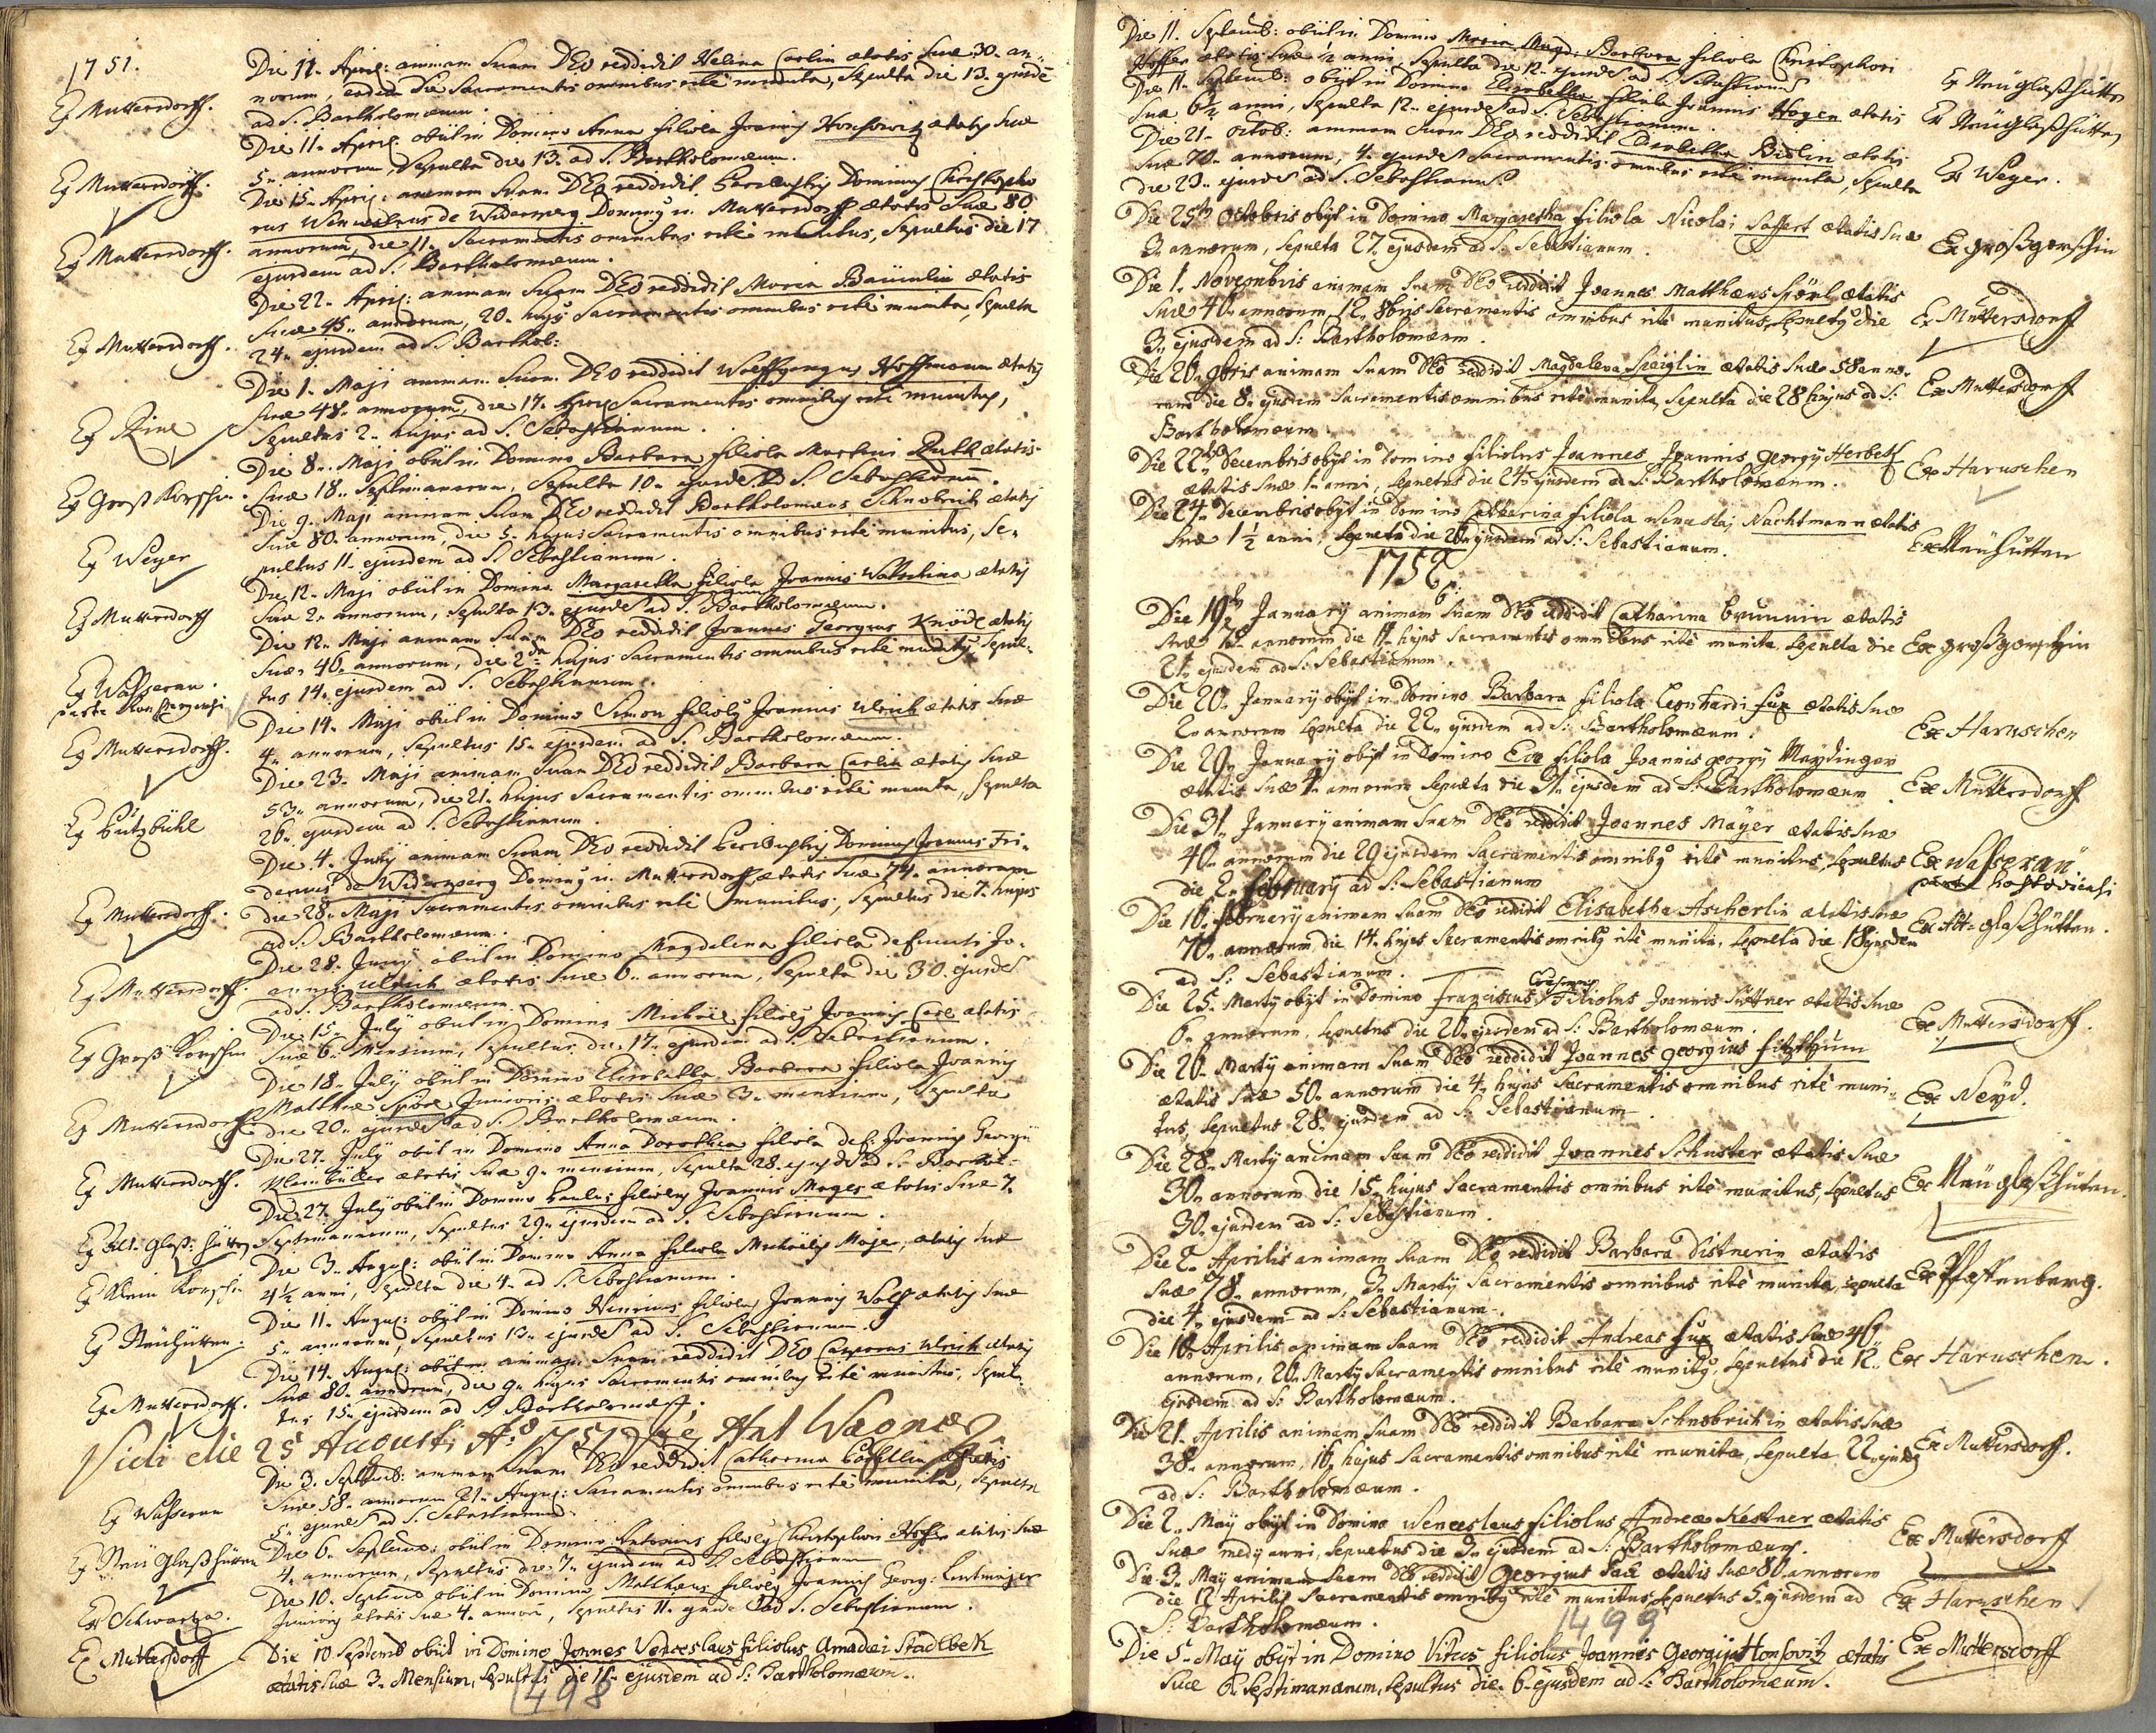 1751.
Ex Muttersdorff.
Die 11. April: animam Suam DEO reddidit Helena Carlin ætatis Suæ 30. an-
norum, eadem die Sacramentis omnibus rite munita, Sepulta die 13. ejusdē
ad S. Bartholomæum.
Ex Muttersdorff.
Die 11. April: obiit in Domino Anna filiola Joannis Honsowitz ætatis Suæ
5. annorum, Sepulta die 13. ad S. Bartholomæum.
Ex Muttersdorff.
Die 15. April: animam Suam DEO reddidit Dominus Christopho
rus de Widersperg Dominus in Muttersdorff ætatis Suæ 80
annorum, die 11. Sacramentis omnibus rite munitus, Sepultus die 17
ejusdem ad S. Bartholomæum.
Ex Muttersdorff.
Die 22. April: animam Suam DEO reddidit Maria Bäumlin ætatis
Suæ 45. annorum, 20. hujus Sacramentis omnibus rite munita, Sepulta
24. ejusdem ad S. Barthol:
Ex
Die 1. Maji animam Suam DEO reddidit Wolffgangus Hoffmann ætatis
Suæ 48. annorum, die 17. Sacramentis omnibus rite munitus,
Sepultus 2. hujus ad S. Sebastianum.
Ex Groß Korschin.
Die 8. Maji obiit in Domino Barbara filiola Martini ætatis
Suæ 18. Septimanarum, Sepulta 10. ejusdē ad S. Sebastianum.
Ex Weyer
Die 9. Maji animam Suam DEO reddidit Bartholomæus Schnobrich ætatis
Suæ 80. annorum, die 5. hujus Sacramentis omnibus rite munitus, Se-
pultus 11. ejusdem ad S. Sebastianum.
Ex Muttersdorff
Die 12. Maji obiit in Domino Margaretha filiola Joannis ætatis
Suæ 2. annorum, Sepulta 13. ejusdē ad S. Bartholomæum.
Ex Wasserau.
Die 12. Maji animam Suam DEO reddidit Joannes Georgius Knödl ætatis
Suæ 46. annorum, die 2da hujus Sacramentis omnibus rite munitus Sepul-
tus 14. ejusdem ad S. Sebastianum.
Ex Muttersdorff.
Die 14. Maji obiit in Domino Simon filiolus Joannis Ulrich ætatis Suæ
4. annorum, Sepultus 15. ejusdem ad S. Bartholomæum.
Ex
Die 23. Maji animam Suam DEO reddidit Barbara Carlin ætatis Suæ
53. annorum, die 21. hujus Sacramentis omnibus rite munita, Sepulta
26. ejusdem ad S. Sebastianum.
Ex Muttersdorff.
Die 4. Junij animam Suam DEO reddidit Dominus Joannes Fri-
dericus de Widersperg Dominus in Muttersdorff ætatis Suæ 74. annorum
die 28. Maji Sacramentis omnibus rite munitus, Sepultus die 7. hujus
ad S. Bartholomæum.
Ex Muttersdorff
Die 28. Junij obiit in Domino Magdalena filiola defuncti Jo-
annis Ulrich ætatis Suæ 6. annorum, Sepulta die 30. ejusdē
ad S. Bartholomæum.
Ex Groß Korschin
Die 15. July obiit in Domino Michäel filiolus Joannis Carl ætatis
Suæ 6. Mensium, Sepultus die 17. ejusdem ad S. Sebastianum.
Ex Muttersdorff
Die 18. July obiit in Domino Elisabetha Barbara filiola Joannis
Matthæi Spörl Junioris ætatis Suæ 3. mensium, Sepulta
die 20. ejusdē ad S. Bartholomæum.
Ex Muttersdorff.
Die 27. July obiit in Domino Anna Dorothea filiola def: Joannis Georgii
ætatis Suæ 9. mensium, Sepulta 28. ejusdē ad S. Barthol:
Ex Alt-Glaß-Hütten
Die 27. July obiit in Domino Paulus filiolus Joannis Mages ætatis Suæ 7.
Septimanarum, Sepultus 29. ejusdem ad S. Sebastianum.
Ex Klein Korschin
Die 3. August: obiit in Domino Anna filiola Michaëlis Majer, ætatis Suæ
4½ anni, Sepulta die 4. ad S. Sebastianum.
Ex Neühütten.
Die 11. August: obiit in Domino Henricus filiolus Joannis Wolf ætatis Suæ
5. annorum, Sepultus 13. ejusdē ad S. Sebastianum.
Ex Muttersdorff.
Die 14. August: animam Suam reddidit DEO Casparus Ulrich ætatis
Suæ 80. annorum, die 9. hujus Sacramentis omnibus rite munitus, Sepul-
tus 15. ejusdem ad S. Bartholomæum.
Vidi die 25 Augusti Ao 1751 Wagner
Ex Wasserau
Die 3. Septemb: animam Suam DEO reddidit Catharina ætatis
Suæ 58. annorum 21. August: Sacramentis omnibus rite munita, Sepulta
5. ejusdē ad S. Sebastianum.
Ex Neü Glaßhütten
Die 6. Septemb: obiit in Domino Antonius filiolus Christophori Hoffer ætatis Suæ
4. annorum, Sepultus die 7. ejusdem ad S. Sebastianum
Ex Schwartza.
Die 10. Septemb obiit in Domino Matthæus filiolus Joannis Georg: Lentmajer
Junioris ætatis Suæ 4. annorū, Sepultus 11. ejusdē ad S. Sebastianum.
Ex Muttersdorff
Die 10 Septemb obiit in Domino Joannes Venceslaus filiolus Amadæi Stadlbek
ætatis Suæ 3. Mensium, Sepultus die 11. ejusdem ad S: Bartholomæum.
498
Die 11. Septemb: obiit in Domino Maria Magd: Barbara filiola Christophori
Hoffer ætatis Suæ ½ anni, Sepulta die 12. ejusdē ad S. Sebastianum
Ex Neüglaßhütten
Die 11. Septemb: obiit in Domino Elisabetha filiola Joannis Hogen ætatis
Suæ 6½ anni, Sepulta 12. ejusdē ad S. Sebastianum.
Ex Neüglaßhütten
Die 21. Octob: animam Suam DEO reddidit Elisabetha ætatis
Suæ 70. annorum, 4. ejusdē Sacramentis omnibus rite munita, Sepulta
die 23. ejusdē ad S. Sebastianum.
Ex Weyer.
Die 25ta Octobris obijt in Domino Margaretha filiola Nicolai Saffert ætatis suæ
3. annorum, sepulta 27. ejusdem ad S: Sebastianum.
Ex großgorschin
Die 1. Novembris animam suam Deo reddidit Joannes Matthæus Spörl ætatis
suæ 40. annorum, 12. 8bris sacramentis omnibus ritè munitus, sepultus die
3. ejusdem ad S: Bartholomæum.
Ex Muttersdorff
Die 26. 9bris animam suam Deo reddidit Magdalena Speiglin ætatis suæ 58 anno-
rum die 8. ejusdem sacramentis omnibus ritè munita, sepulta die 28 hujus ad S:
Bartholomæum
Ex Muttersdorff
Die 22 decembris obijt in Domino filiolus Joannes Joannis georgij Herbek
ætatis suæ 1. anni, sepultus die 24 ejusdem ad S: Bartholomæum.
Ex Haruschen
Die 24. decembris obijt in Domino Catharina filiola wenceslaj Nachtmann ætatis
suæ 1½ anni, sepulta die 26. ejusdem ad S: Sebastianum.
Ex Neuhutten
1752
Die 19. January animam suam Deo reddidit Catharina Brunnin ætatis
suæ annorum die 17. hujus sacramentis omnibus ritè munita, sepulta die
21. ejusdem ad S: Sebastianum.
Ex großgorschin
Die 20. January obijt in Domino Barbara filiola Leonhardi fux ætatis suæ
2. annorum sepulta die 22. ejusdem ad S: Bartholomæum.
Ex Haruschen
Die 29. January obijt in Domino Eva filiola Joannis georgij Maydinger
ætatis suæ 4. annorum sepulta die 31. ejusdem ad S: Bartholomæum
Ex Muttersdorff
Die 31. January animam suam Deo reddidit Joannes Mayer ætatis suæ
40. annorum die 29 ejusdem sacramentis omnibus ritè munitus, sepultus
die 2. february ad S: Sebastianum
Ex Wasserau
Die 16. february animam suam Deo reddidit Elisabetha Ascherlin ætatis suæ
70. annorum die 14. hujus sacramentis omnibus ritè munita, sepulta die 18 ejusdem
ad S: Sebastianum.
Ex Alt-glaßhütten.
Die 25. Marty obijt in Domino franciscus filiolus Joannis Süttner ætatis suæ
6. annorum, sepultus die 26. ejusdem ad S: Bartholomæum.
Ex Muttersdorff.
Die 26. Marty animam suam Deo reddidit Joannes georgius fitzthum
ætatis suæ 50. annorum die 4. hujus sacramentis omnibus ritè muni-
tus, sepultus 28. ejusdem ad S: Sebastianum.
Ex Neyd.
Die 28. Marty animam suam Deo reddidit Joannes Schuster ætatis suæ
30. annorum die 15. hujus sacramentis omnibus ritè munitus, sepultus
30. ejusdem ad S: Sebastianum.
Ex Neüglaßhüten.
Die 2. Aprilis animam suam Deo reddidit Barbara Distnerin ætatis
suæ 78. annorum, 3. Marty sacramentis omnibus ritè munita, sepulta
die 4. ejusdem ad S: Sebastianum.
Ex Pfaffenberg.
Die 10. Aprilis animam suam Deo reddidit Andreas fux ætatis suæ 46.
annorum, 20. Marty sacramentis omnibus ritè munitus, sepultus die 12.
ejusdem ad S: Bartholomæum.
Ex Haruschen.
Die 21. Aprilis animam suam Deo reddidit Barbara Schnobrichin ætatis suæ
38. annorum, 16. hujus sacramentis omnibus ritè munita, sepulta 22. ejusdem
ad S: Bartholomæum.
Ex Muttersdorff.
Die 2. May obijt in Domino wenceslaus filiolus Andreæ Kestner ætatis
suæ medij anni, sepultus die 3. ejusdem ad S: Bartholomæum.
Ex Muttersdorff
Die 3. May animam suam Deo reddidit Georgius Sack ætatis suæ 80. annorum
die 12 Aprilis sacramentis omnibus ritè munitus, sepultus 5. ejusdem ad
S: Bartholomæum.
Ex Haruschen
1499
Die 5. May obijt in Domino Vitus filiolus Joannis Georgij Honsovitz ætatis
suæ 6. septimanarum, sepultus die 6. ejusdem ad S: Bartholomæum.
Ex Muttersdorff